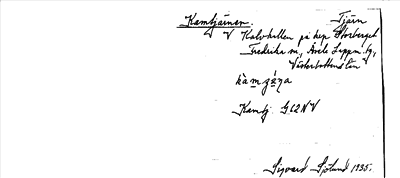 Kamtjärnen. Tjärn
V Kalvkullen på kep Storberget
Fredrika sn, Åsele Lappm. tg,
Västerbottens län
Kartbl. G 62 N V
Sigvard Sjölund 1935.